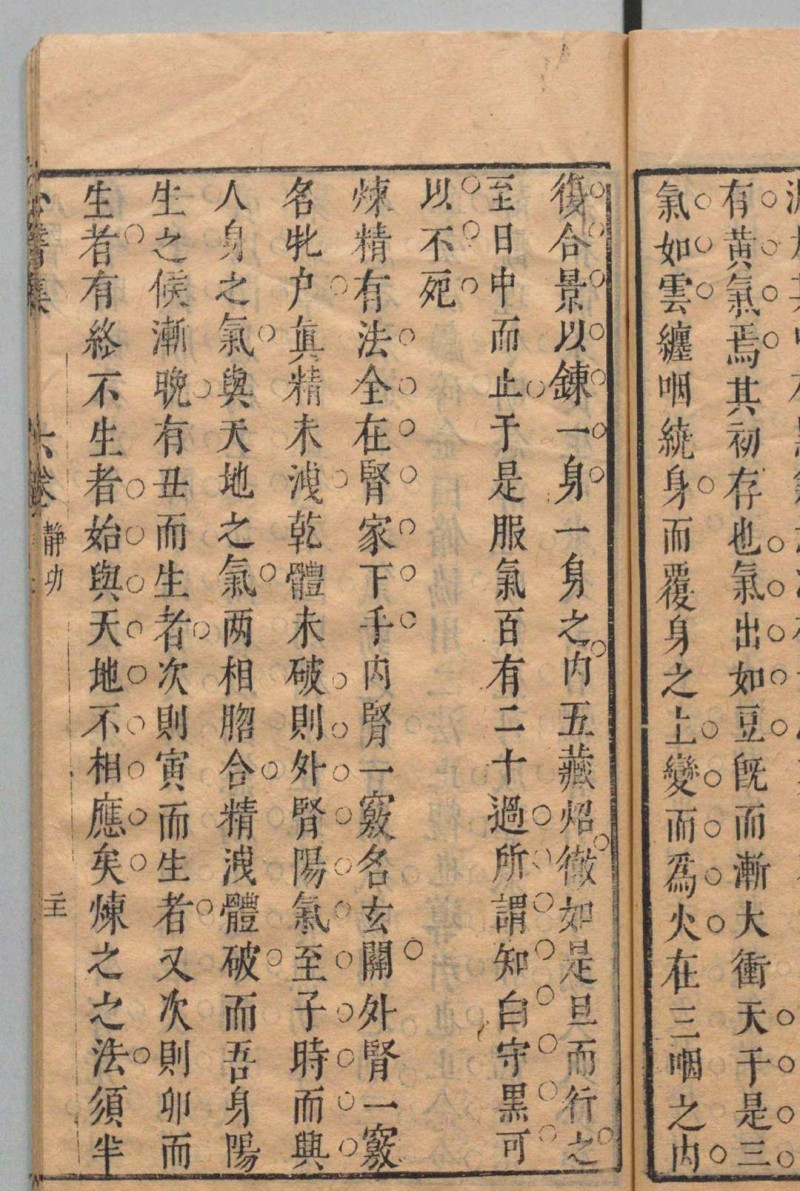 有黄氣焉其初存也氣出如豆旣而漸大衝天于是三
氣如雲纏咽統身而覆身之上變而爲火在三咽之内
復合景以鍊一身一身之内五藏炤徹如是旦而行之
至日中而止于是服氣百有二十過所謂知白守黒可
以不死
煉精有法全在腎家下手内腎一竅名玄關外腎一竅
名牝户眞精未洩乾體未破則外腎陽氣至子時而興
人身之氣與天地之氣两相脗合精洩體破而吾身陽
生之候漸晩有丑而生者次則寅而生者又次則卯而
生者有終不生者始與天地不相應矣煉之之法須半
集
六卷
静功